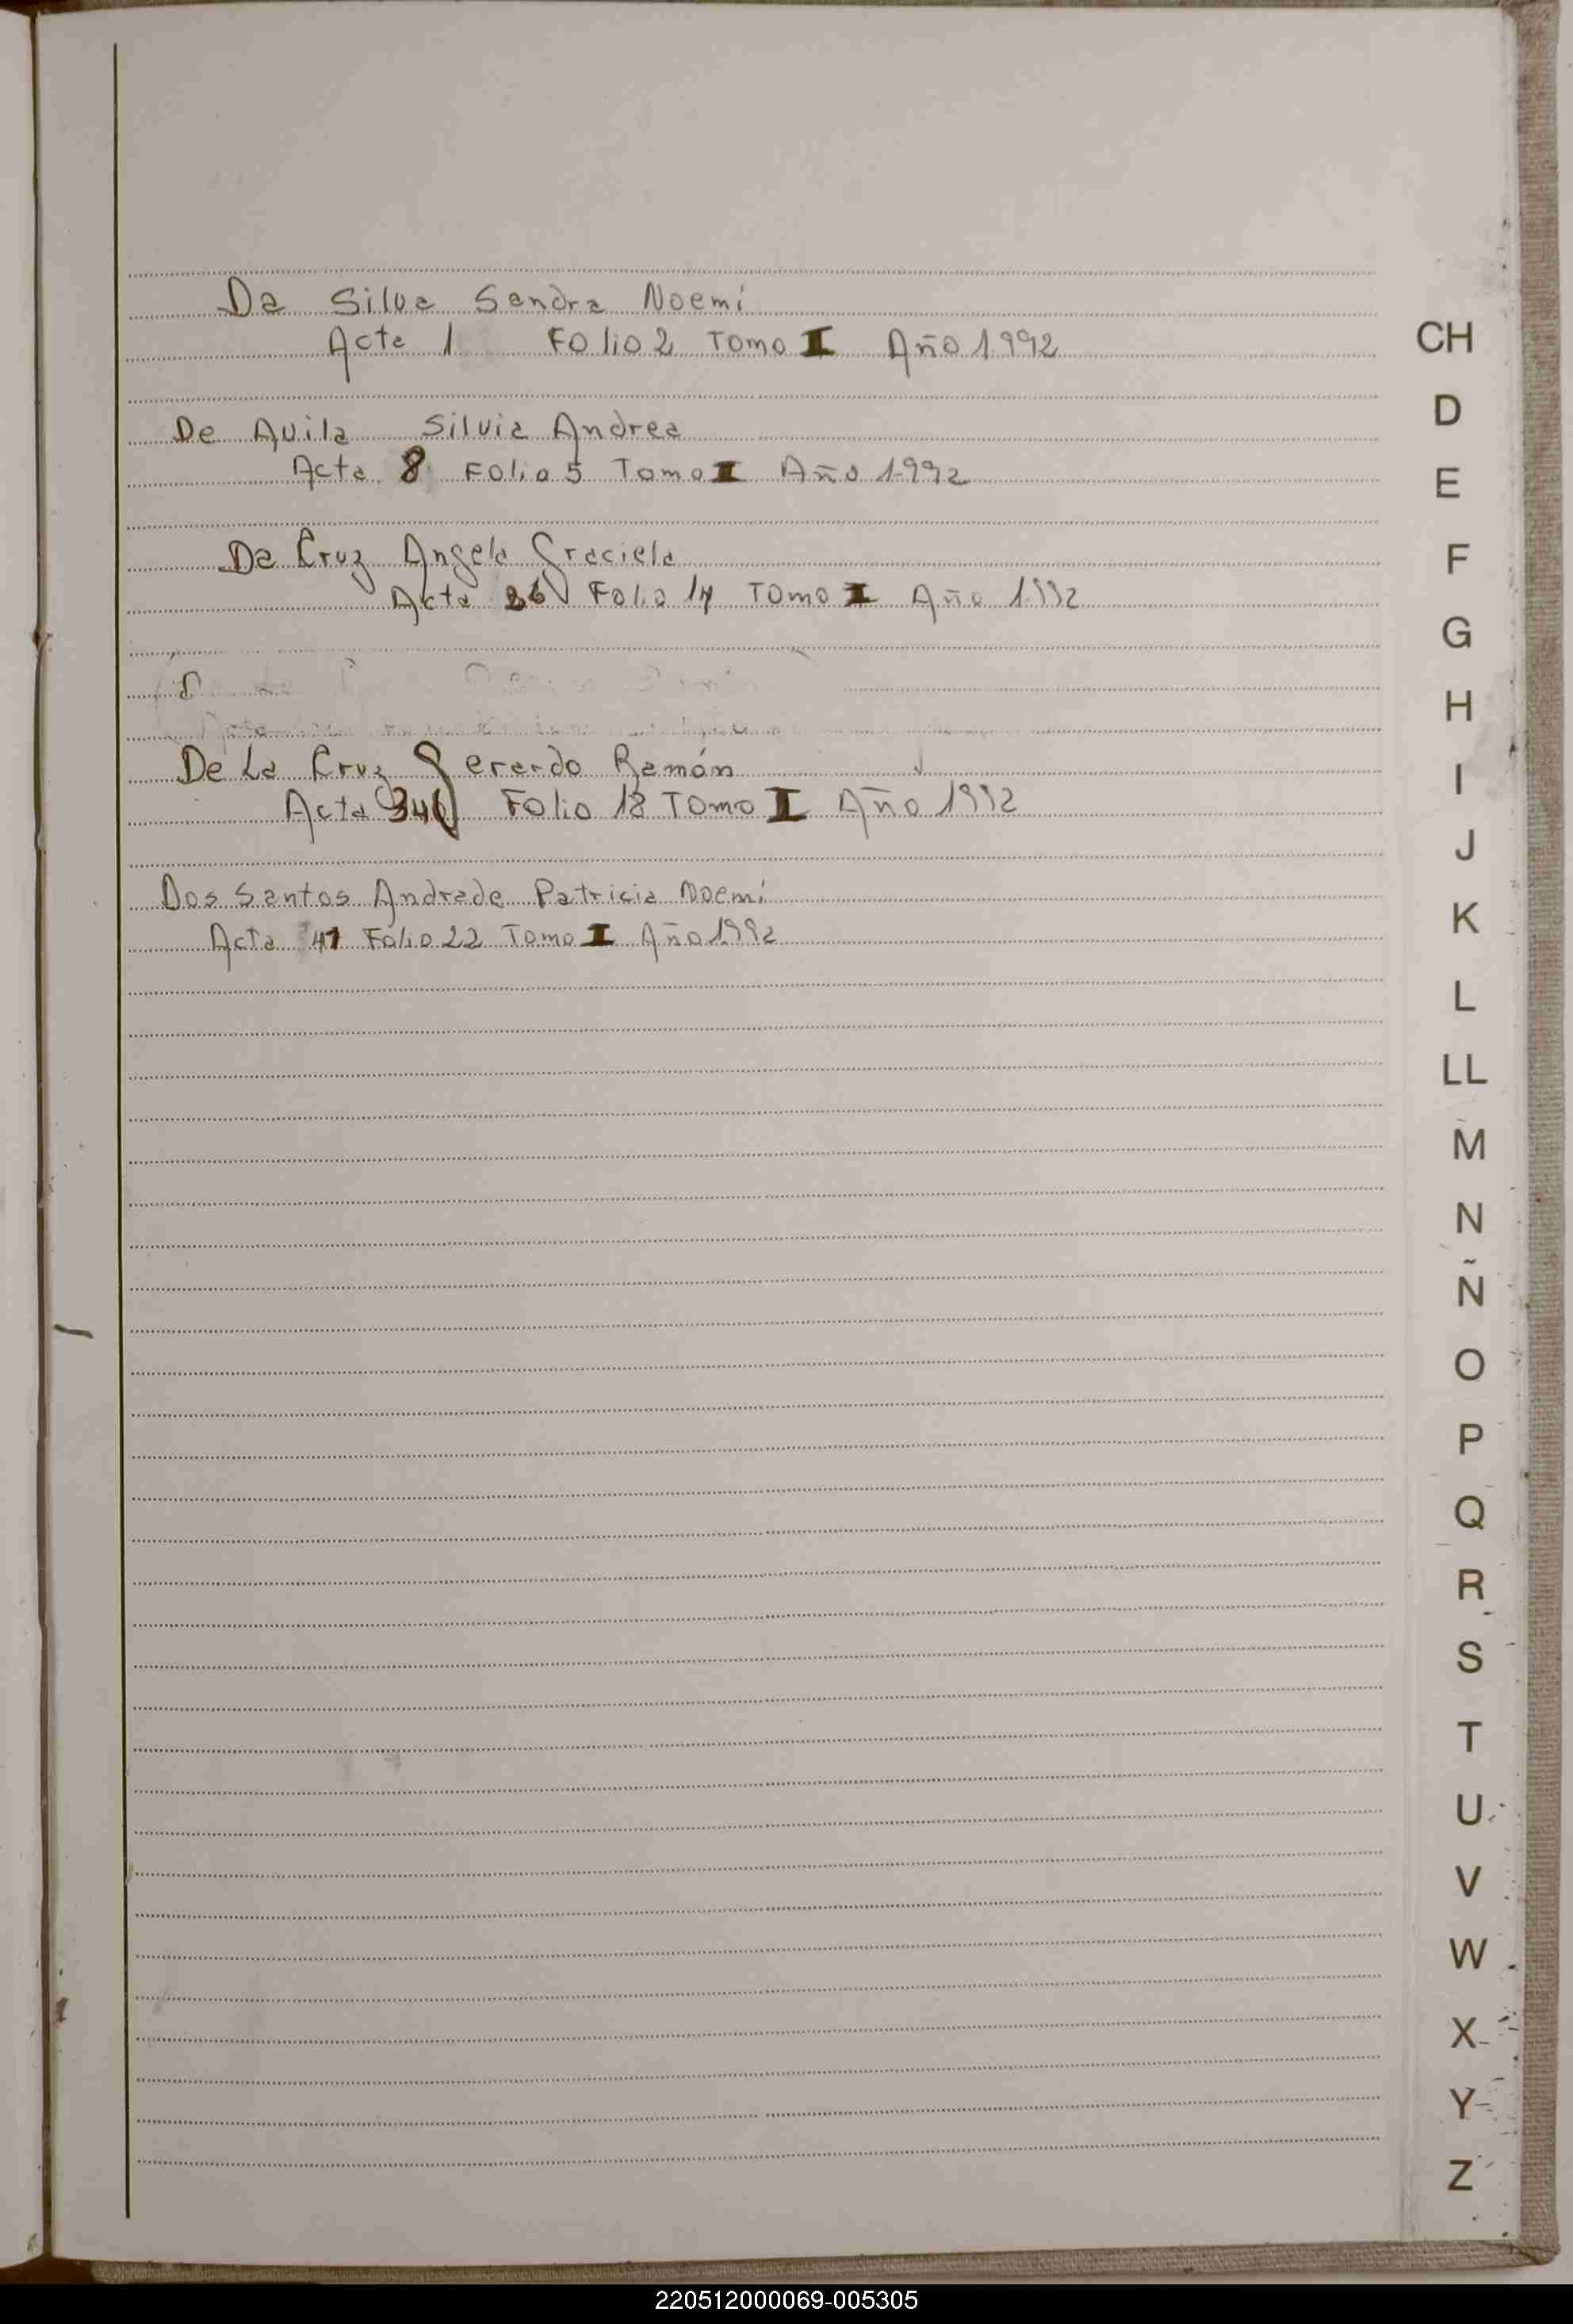 Da Silva Sandra Noemí
Acta 1 Folio 2 Tomo I Año 1992
De Avila Silvia Andrea
Acta 8 Folio 5 Tomo I Año 1992
Da Cruz Angela Graciela
Acta 26 Folio 14 Tomo I Año 1992
De La Cruz Gerardo Ramón
Acta Folio 18 Tomo I Año 1992
Dos Santos Andrade Patricia Noemí
Acta 41 Folio 22 Tomo I Año 1992
CH
D
E
F
G
H
I
J
K
L
LL
M
N
Ñ
O
P
Q
R
S
T
U
V
W
X
Y
Z
220512000069-005305